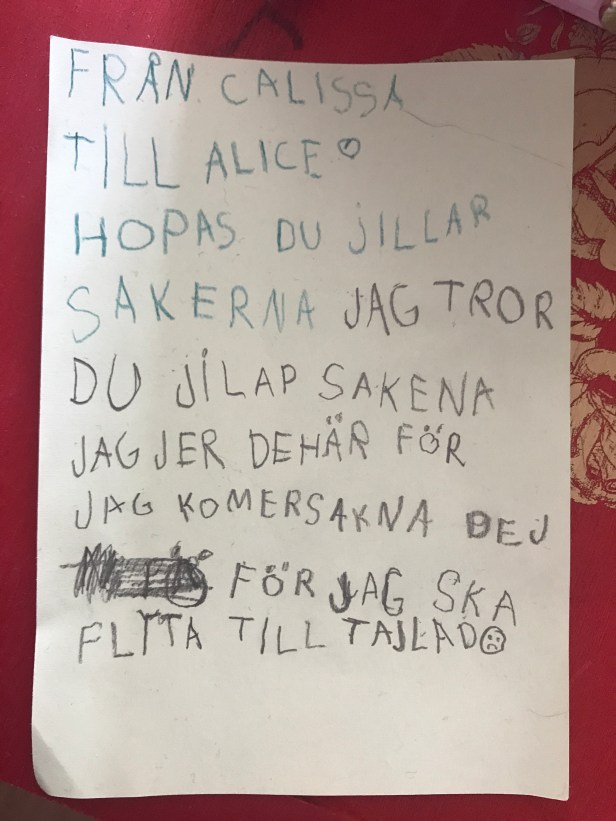 FRÅN CALISSA
TILL ALICE
HOPAS DU JILLAR
SAKERNA JAG TROR
DU JILAP SAKENA
JAG JER DEHÄR FÖR
JAG KOMERSAKNA DEJ
FÖR JAG SKA
FLYTA TILL TAJLAD